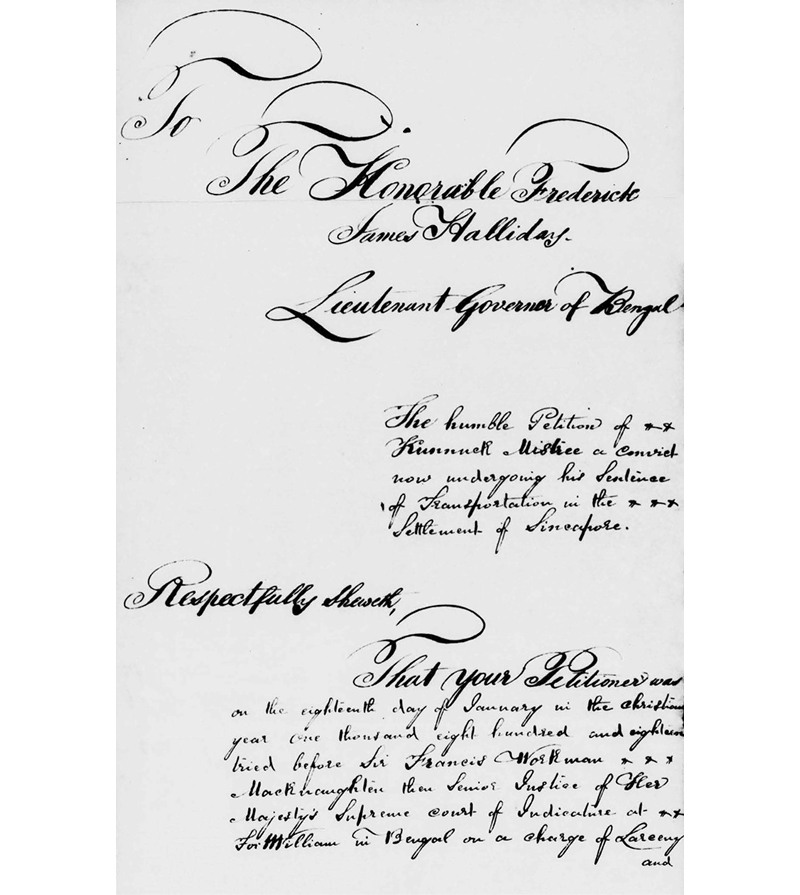 To
The Honorable Frederick
James Halliday.
Lieutenant Governor of Bengal
The humble Petition of * *
Kunnuck Mistree a convict
now undergoing his Sentence
of Transportation in the * * *
Settlement of Sincapore.
Respectfully sheweth,
That your Petitioner was
on the eighteenth day of January in the christian
year one thousand eight hundred and eighteen
tried before Sir Francis Workman * * *
Macknaughten then Senior Justice of Her
Majesty's Supreme court of Judicature at * *
Fort William in Bengal on a charge of Larceny
and